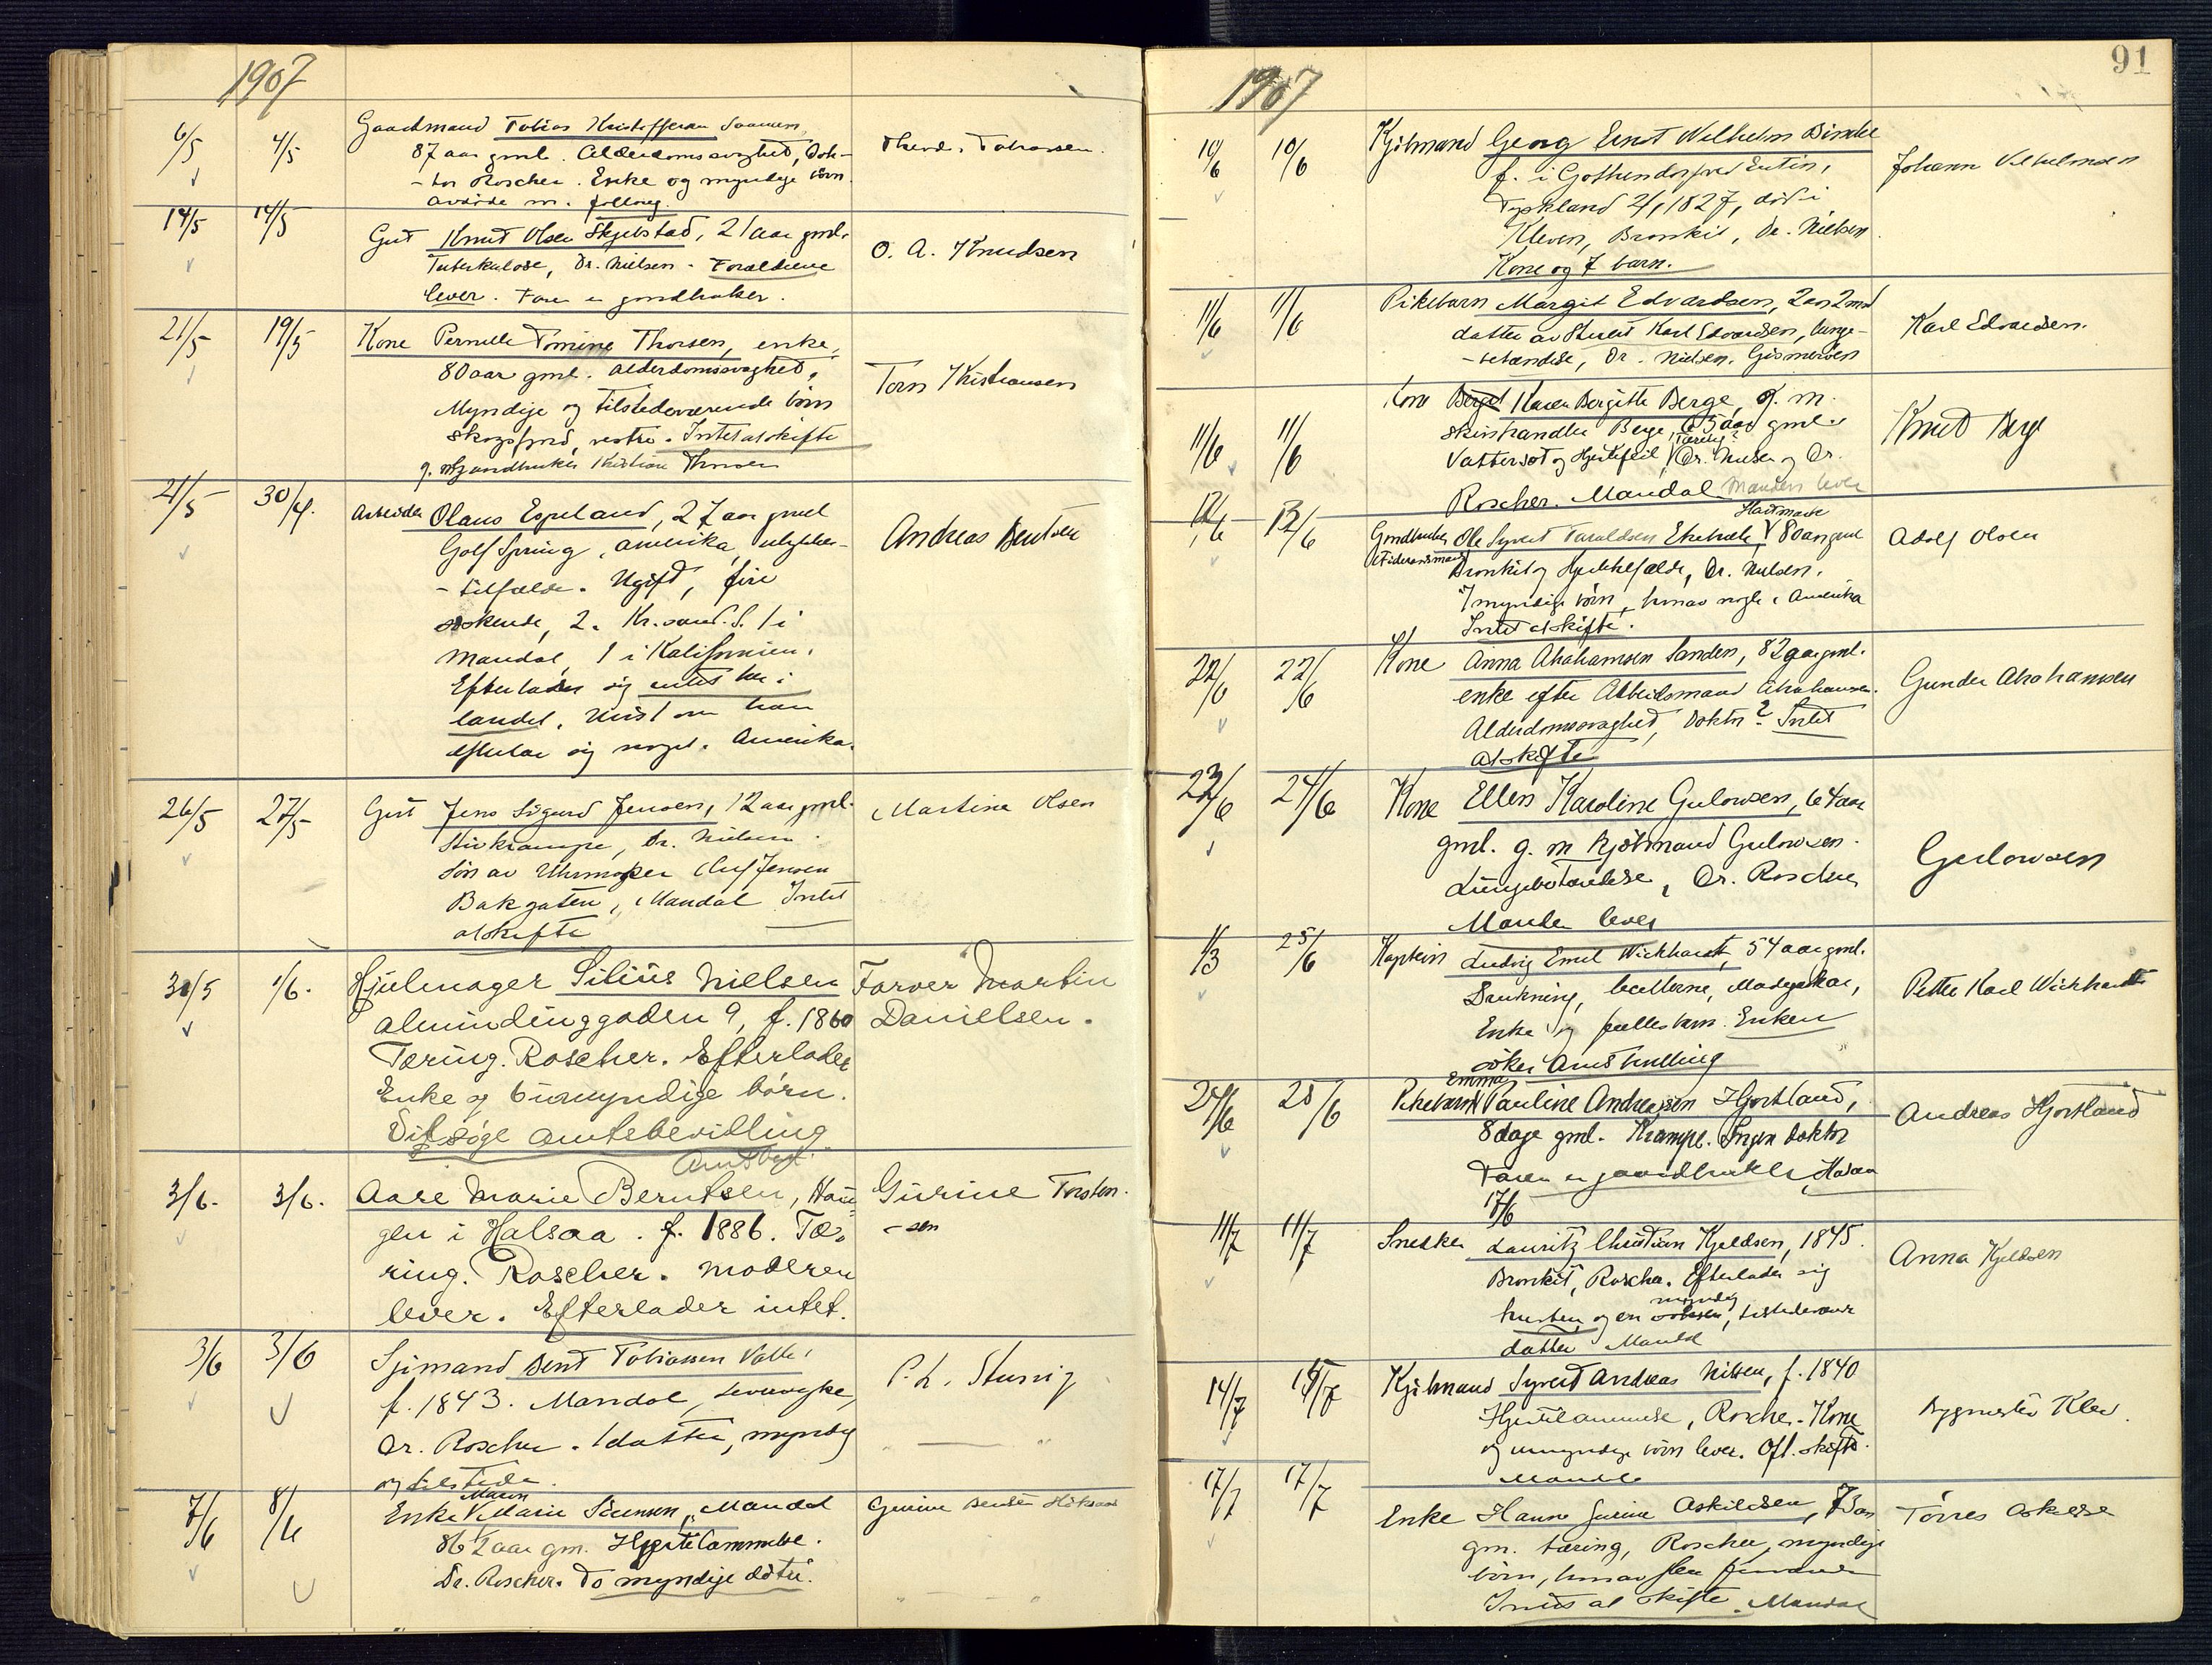 1907
6/5 4/5 Gaardmand Tobias Kristoffersen
87 aar gml. Alderdomssvaghed, Dok-
-tor Roscher. Enke og myndige börn.
Theod. Tobiassen.
14/5 14/5 Gut Knut Olsen Skjebstad, 21 aar gml.
Tuberkulose, Dr. Nielsen. Forældrene
lever. Faren er gaardbruker.
O. A. Knudsen
21/5 19/5 Kone Pernille Tomine Thorsen, enke,
80 aar gml. Alderdomssvaghed,
Myndige og tilstedeværende börn
Intet at skifte
g. m. gaardbruker Kristian Thorsen
Tom Kristiansen
21/5 30/4. Arbeider Olaus Espeland, 27 aar gml
Golf Spring, Amerika, ulykkes-
-tilfælde. Ugift, fire
söskende, 2 i Kr.sand S. 1 i
Mandal, 1 i Kalifornien.
Efterlader sig intet her i
landet. Uvist om han
efterlar sig noget i Amerika.
Andreas Bentsen
26/5 27/5 Gut Jens Sigurd Jensen, 12 aar gml.
Stivkrampe, Dr. Nielsen.
Sön av Uhrmaker Jensen
Bakgaten, Mandal Intet
at skifte
Martine Olsen
30/5 1/6. Hjulmager Silius Nielsen
Almindinggaden 9, f. 1860
Tæring. Roscher. Efterlader
Enke og 6 umyndige börn.
Vil söge amtsbevilling
Amtsbev.
Farver Martin
Danielsen.
3/6. 3/6. Aase Marie Berntsen, Hau-
gen i Halsaa. f. 1886. Tæ-
ring. Roscher. Moderen
lever. Efterlader intet.
Gurine Torsten-
-sen
3/6 3/6 Sjömand Bent Tobiassen Valle,
f. 1843. Mandal,
Dr. Roscher. 1 datter, myndig
og tilstede.
7/6 8/6 Enke Maren Marie Sörensen, Mandal
86 1/2 aar gm. Hjertelammelse.
Dr. Roscher. To myndige dötre.
Gurine Bentsen
91
1907
10/6 10/6 Kjöbmand Georg Ernst Wilhelm
f. i Gothendorf ved Eutin,
Tyskland 2/1 1827, död i
Kleven, Bronkit, Dr. Nielsen.
Kone og 7 barn.
Johann
11/6 11/6 Pikebarn Margit Edvardsen, 2 aar 2 md
datter av Karl Edvardsen, lunge-
-betændelse, Dr. Nielsen. Gismeröen
Karl Edvardsen.
11/6 11/6 Kone Karen Bergitte Berge, g. m.
skinhandler Berge, 65 aar gml.
Vattersot og Hjertefeil, Tæring? Dr. Nielsen og Dr.
Roscher. Mandal Manden lever
Knut Berge
12/6 12/6 Gaardbruker Ole Syvert Taraldsen 80 aar gml
Bronkit og Dr. Nielsen.
7 myndige börn, hvorav nogle i Amerika
Intet at skifte.
Adolf Olsen
22/6 22/6 Kone Anna Abrahamsen Sanden, 82 aar gml.
enke efter Arbeidsmand Abrahamsen.
Alderdomssvaghed, Doktor? Intet
at skifte
Gunder Abrahamsen
23/6 24/6 Kone Ellen Karoline Gulowsen, 64 aar
gml. g. m Kjöbmand Gulowsen.
Lungebetændelse, Dr. Roscher
Manden lever
Gulowsen
1/3 25/6 Kaptein Ludvig Emil Wickhardt, 54 aar gml.
Drukning, Madagaskar,
Enke og fælles barn. Enken
söker Amtsbevilling
Petter Karl Wickhardt
24/6 25/6 Pikebarn Emma Pauline Andreassen Hjortland,
8 dage gml. Krampe. Ingen doktor
Faren er gaardbruker,
17/6
Andreas Hjortland
11/7 11/7 Snekker Lauritz Christian Kjeldsen, 1845.
Bronkit, Roscher. Efterlader sig
hustru og en voksen, myndig tilstedevær
datter Mandal
Anna Kjeldsen
14/7 15/7 Kjöbmand Syvert Andreas Nilsen, f. 1840
Hjertelammelse, Roscher. Kone
og umyndige börn lever. Off. skifte.
Mandal
Bygmester Klev.
17/7 17/7 Enke Hanne Gurine Askildsen, 73 aar
gm. tæring, Roscher, myndige
börn, hvorav flere
Intet at skifte. Mandal
Törres Askildsen